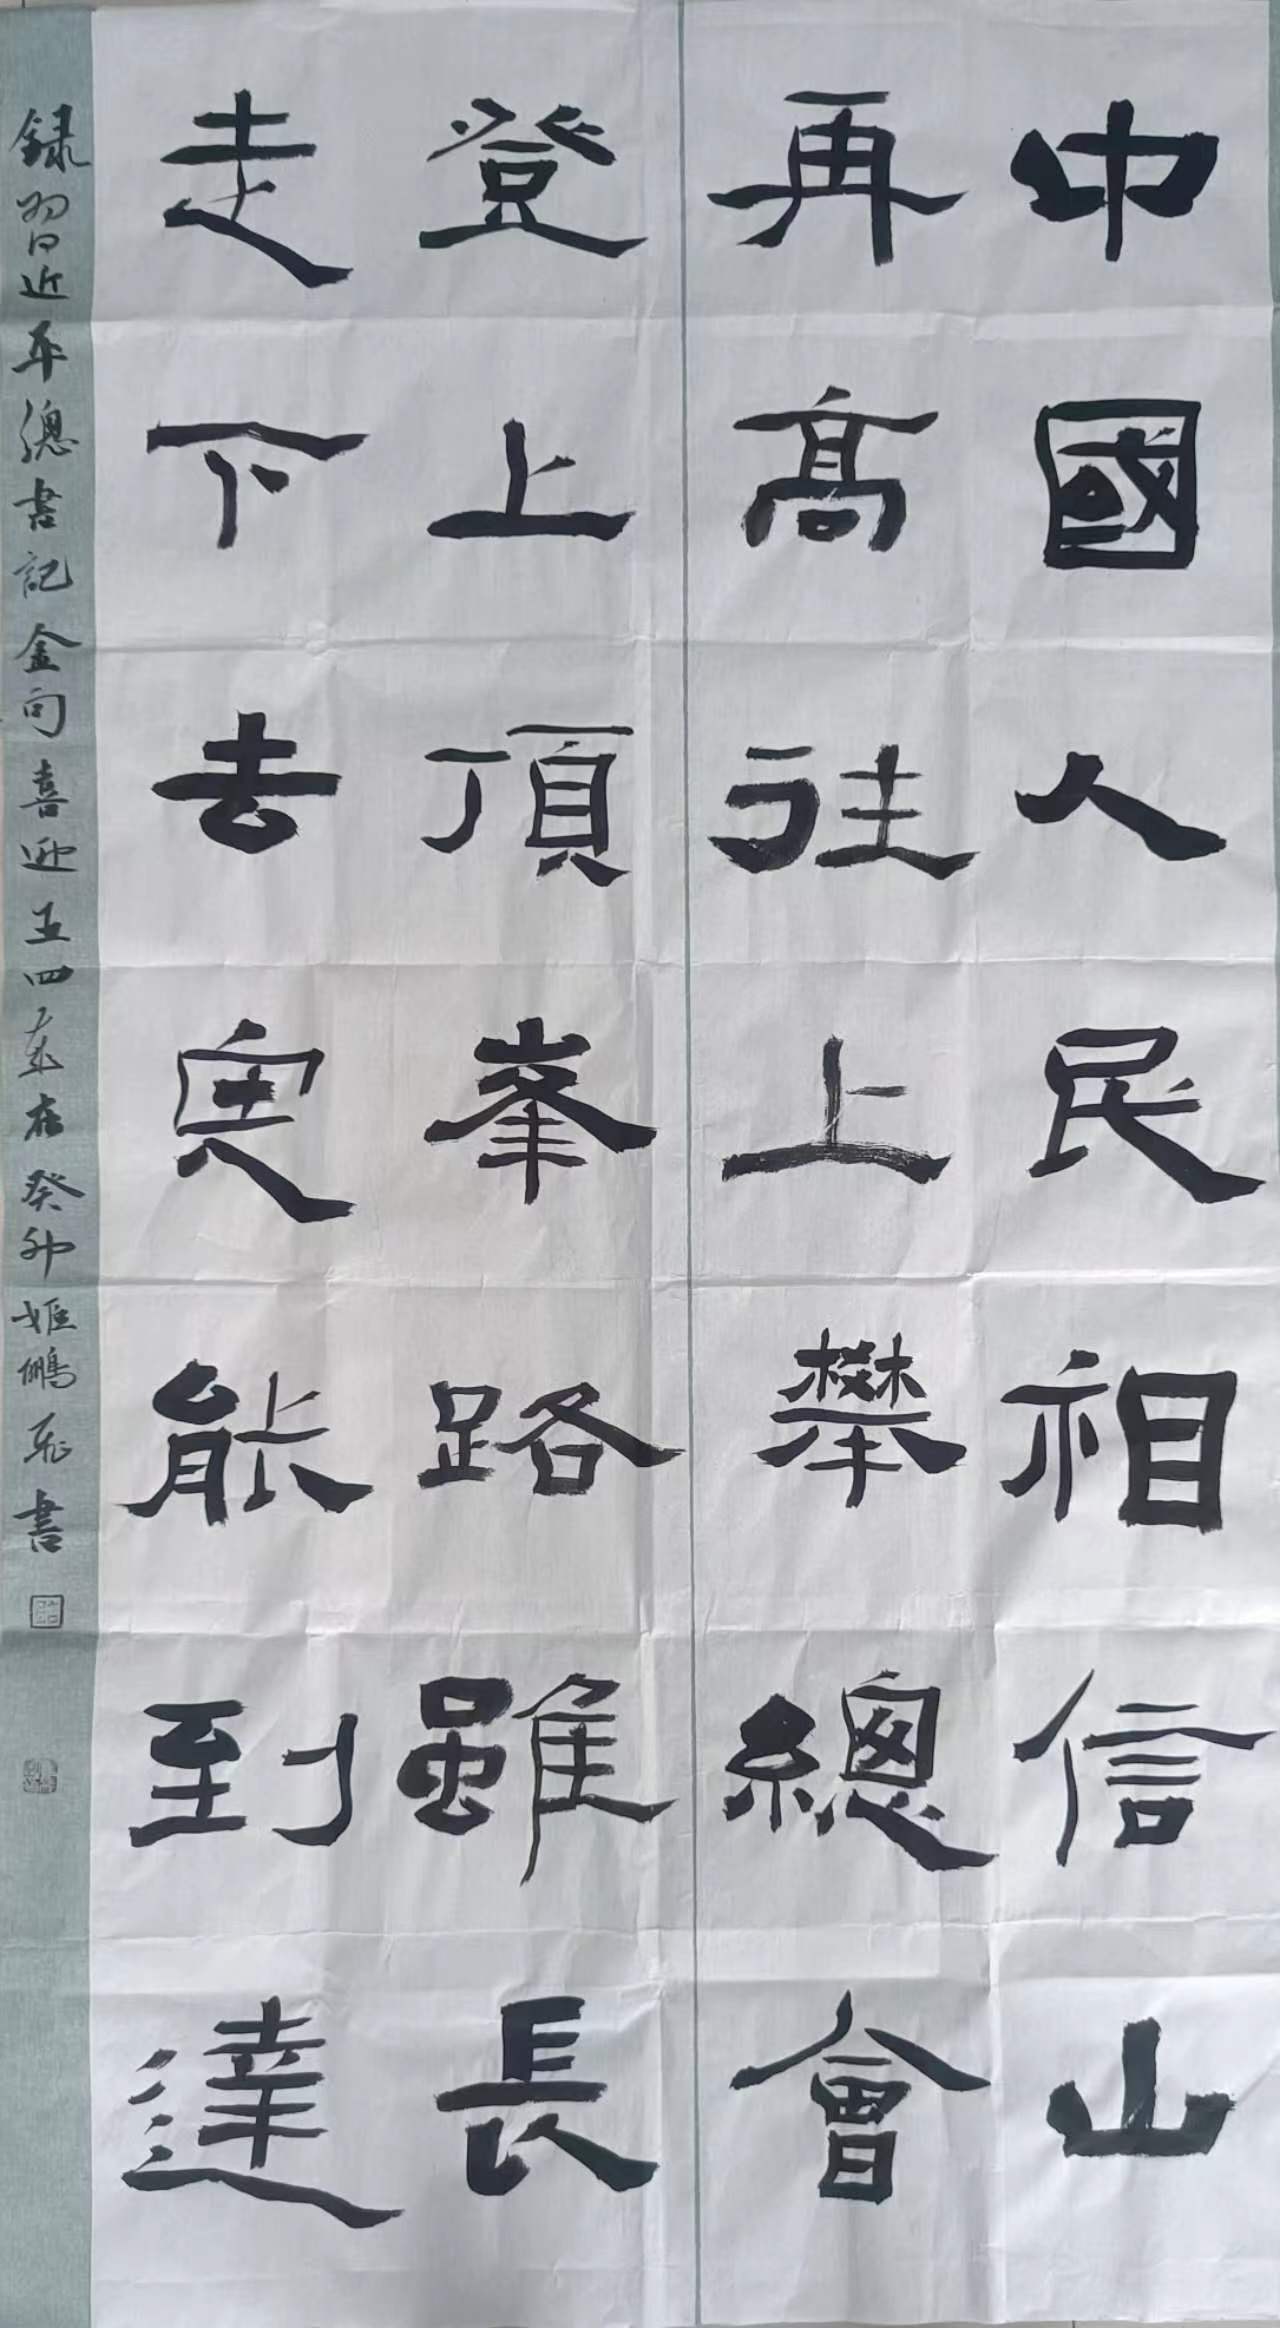 中國人民相信山
再高往上攀總會
登上頂峯路雖長
走下去定能到達
録習近平總書記金句喜迎五四歲在癸卯姬鵬飛書